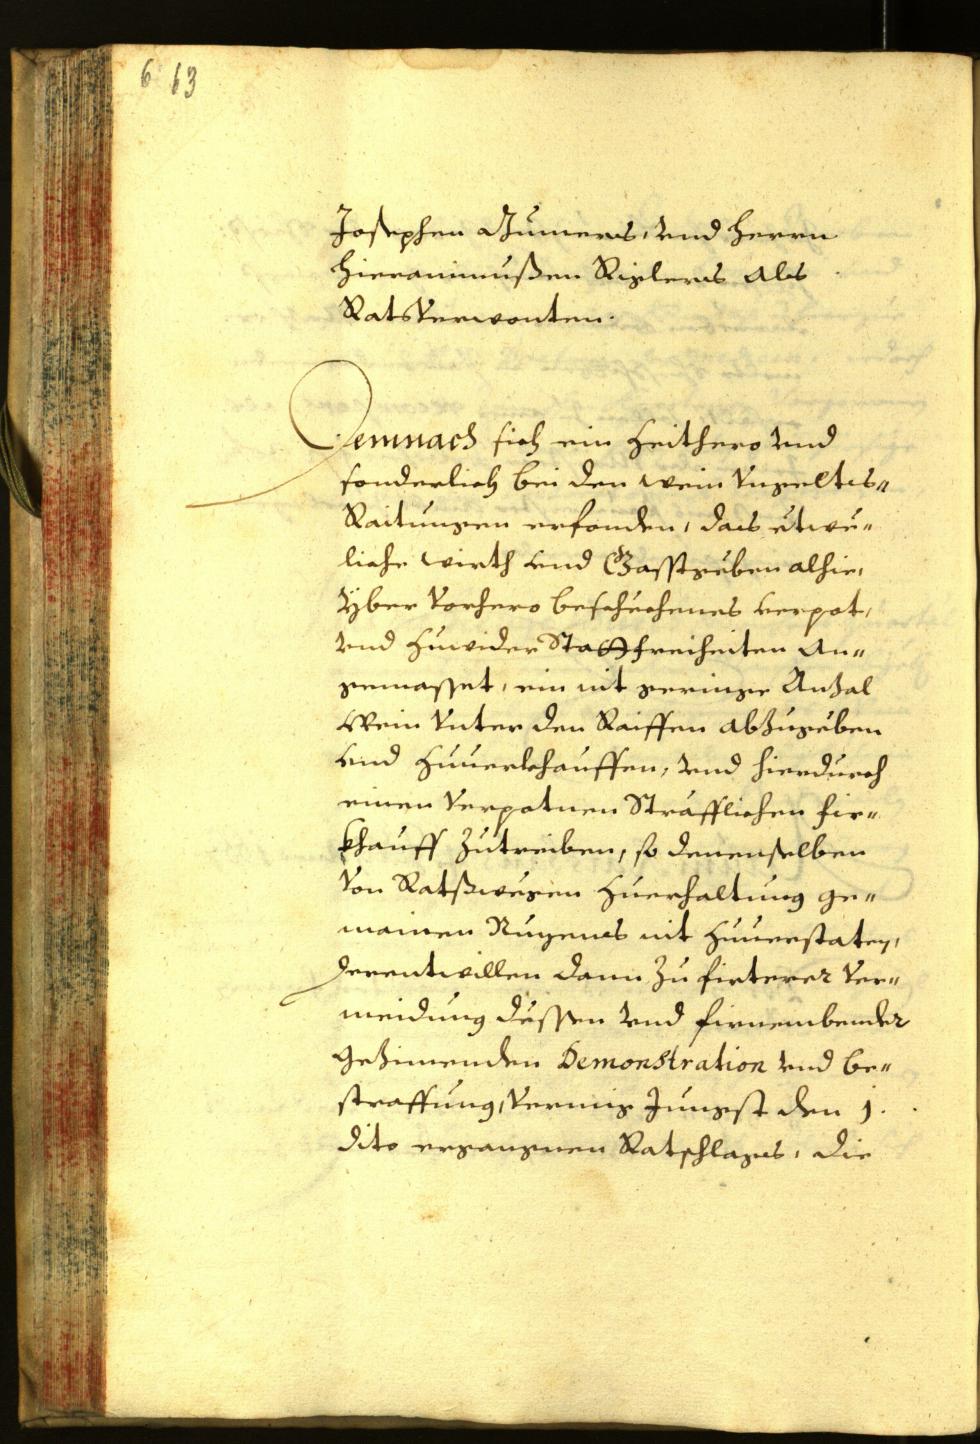 6 63
Josephen Numers, vnd herrn
Hieronimußen Riglers als
Ratsverwonten.
Demnach sich ein Zeithero vnd
sonderlich bei den wein Vngelts-
Raitungen erfonden, das etwe-
liche wirth vnd Gasstgeben alhie,
yber vorhero beschechenes verpot,
vnd zuwider Statfreiheiten an-
gemasset, ein nit geringe Anzal
Wein vnter den Raiffen abzugeben
vnd zuuerkhauffen, vnd hierdurch
einen verpotnen Sträfflichen fir-
khauff zutreiben, so denenselben
von Ratßwegen zuerhaltung ge-
mainen Nuzens nit zuuerstaten,
derentwillen dann zu firterer ver-
meidung dessen vnd firnembender
gezimenden Demonstration vnd be-
straffung, vermig Jungst den 1.
dito ergangnen Ratschlages, die